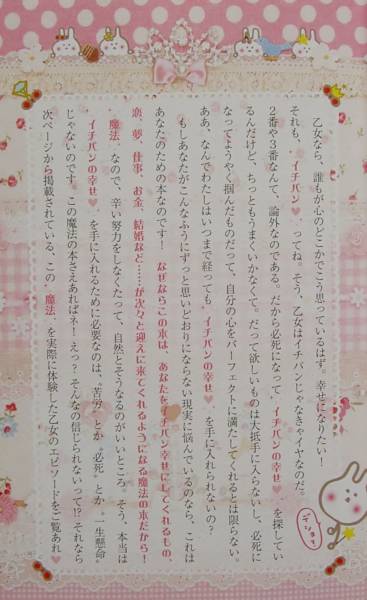 乙女なら、誰もが心のどこかでこう思っているはず。幸せになりたい！
それも、“イチバンの幸せ♥”ってね。そう、乙女はイチバンじゃなきゃイヤなのだ。
2番や3番なんて、論外なのである。だから必死になって“イチバンの幸せ♥”を探してい
るんだけど、ちっともうまくいかなくて。だって欲しいものは大抵手に入らないし、必死に
なってようやく掴んだものだって、自分の心をパーフェクトに満たしてくれるとは限らない。
ああ、なんでわたしはいつまで経っても“イチバンの幸せ♥”を手に入れられないの？
もしあなたがこんなふうにずっと思いどおりにならない現実に悩んでいるのなら、これは
あなたのための本なのです！ なぜならこの本は、あなたをイチバン幸せにしてくれるもの、
恋、夢、仕事、お金、結婚など……が次々と迎えに来てくれるようになる魔法の本だから！
“魔法”なので、辛い努力をしなくたって、自然とそうなるのがいいところ。そう、本当は
“イチバンの幸せ♥”を手に入れるために必要なのは、“苦労”とか“必死”とか“一生懸命”
じゃないのです。この魔法の本さえあればネ！えっ？ そんなの信じられないって!? それなら
次ページから掲載されている、この“魔法”を実際に体験した乙女のエピソードをご覧あれ♥